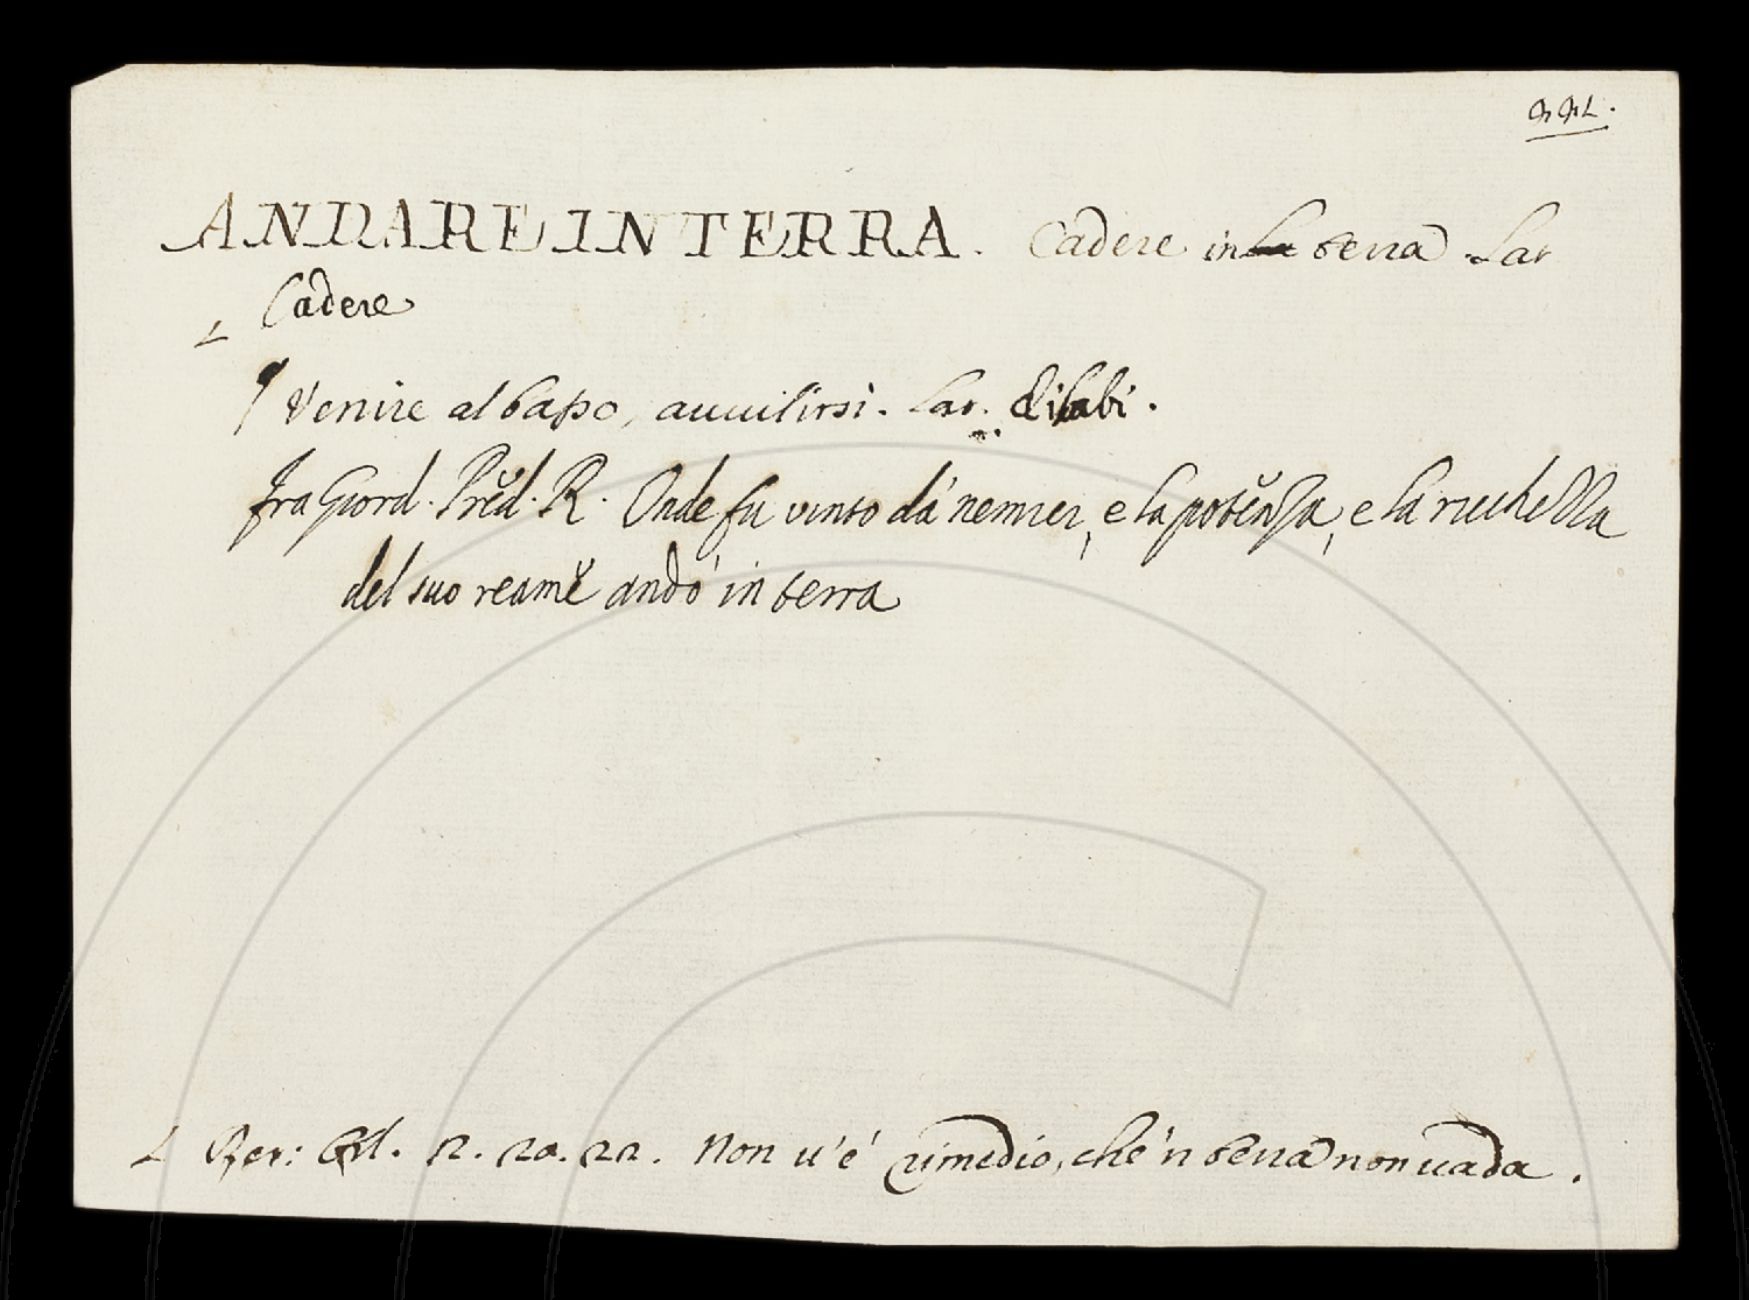 ANDARE IN TERRA. Cadere in la terra. Lat
Cadere
L
¶ Venire al basso, auuilirsi. Lat. dilabi.
fra Giord. Pred. R. Onde fu vinto da' nemici, e la potenza, e la ricchezza
del suo reame andò in terra
L Ber: Orl. 2. 20. 22. Non u'é rimedio, che 'n terra non uada.